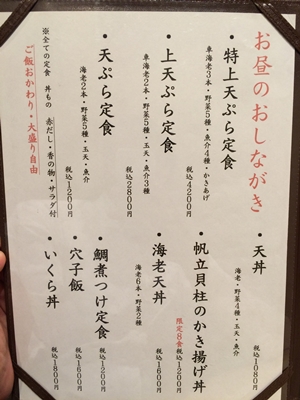 お昼のおしながき
・特上天ぷら定食
車海老3本・野菜5種・魚介4種・かきあげ
税込4200円
・上天ぷら定食
車海老2本・野菜5種・玉天・魚介3種
税込2800円
・天ぷら定食
海老2本・野菜5種・玉天・魚介
税込1200円
※全ての定食 丼もの 赤だし・香の物・サラダ付
ご飯おかわり・大盛り自由
・天丼
海老・野菜4種・玉天・魚介
税込1080円
・帆立貝柱のかき揚げ丼
限定8食 税込1200円
・海老天丼
海老6本・野菜2種
税込1600円
・鯛煮つけ定食
税込1200円
・穴子飯
税込1600円
・いくら丼
税込1800円